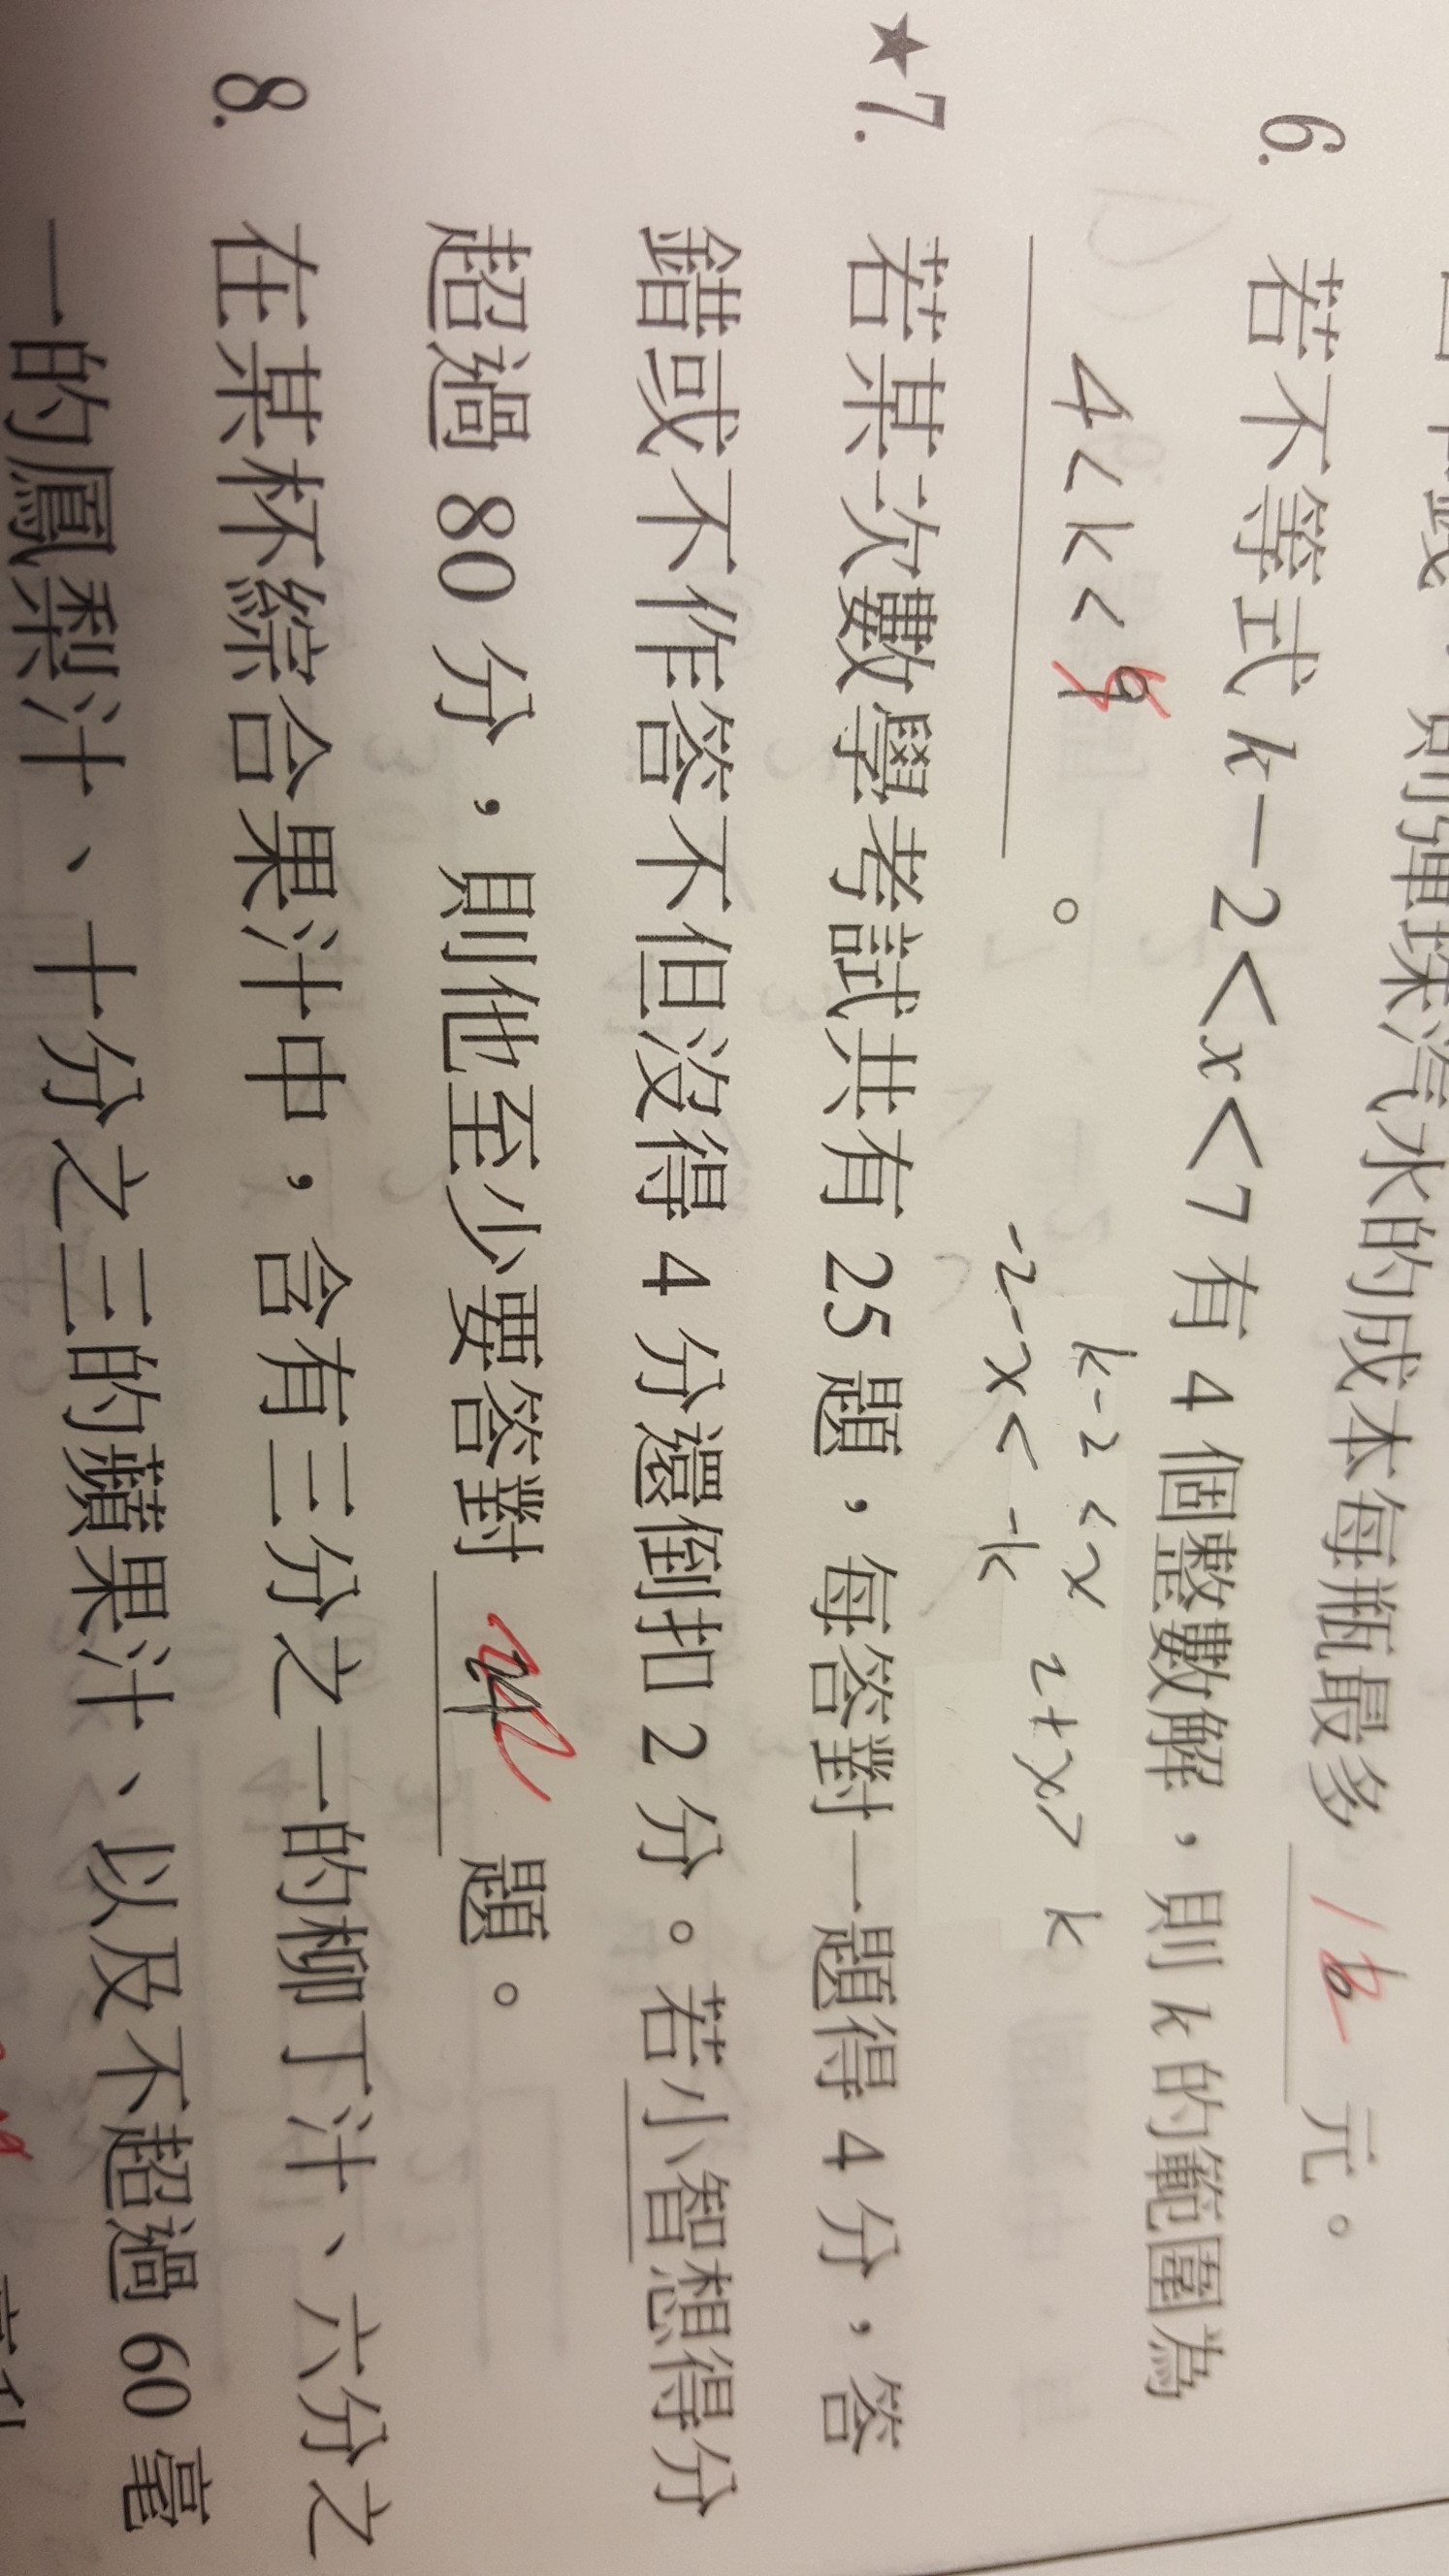 則彈珠汽水的成本每瓶最多 元。
6. 若不等式 k-2<x<7 有 4 個整數解,則 k 的範圍為
4<k< 。
k-2<x 2+x>k
-2-x<-k
★7. 若某次數學考試共有 25 題,每答對一題得 4 分,答
錯或不作答不但沒得 4 分還倒扣 2 分。若小智想得分
超過 80 分,則他至少要答對 題。
8. 在某杯綜合果汁中,含有三分之一的柳丁汁、六分之
一的鳳梨汁、十分之三的蘋果汁、以及不超過 60 毫